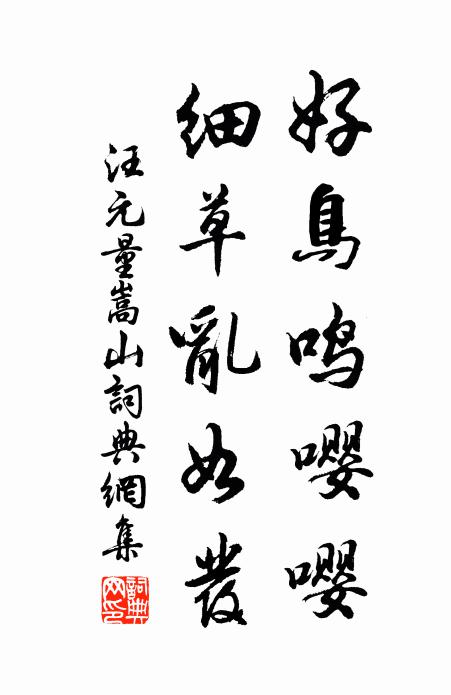 好鳥鳴嚶嚶
細草亂如發
汪元量嵩山詞典網集
詞典網印